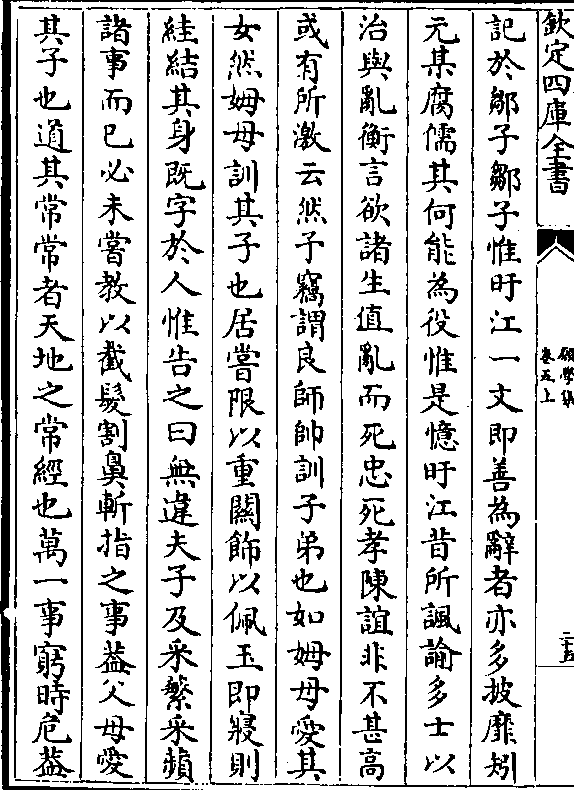 欽定四庫全書
願學集
卷五上
二十五
記於鄒子鄒子惟旴江一文即善為辭者亦多披靡矧
元某腐儒其何能為役惟是憶旴江昔所諷諭多士以
治與亂衡言欲諸生值亂而死忠死孝陳誼非不甚高
或有所激云然予竊謂良師帥訓子弟也如姆母愛其
女然姆母訓其子也居嘗限以重闗飾以佩玉即寢則
絓結其身既字於人惟告之曰無違夫子及采蘩采蘋
諸事而已必未嘗教以截髮割鼻斬指之事葢父母愛
其子也道其常常者天地之常經也萬一事窮時危葢